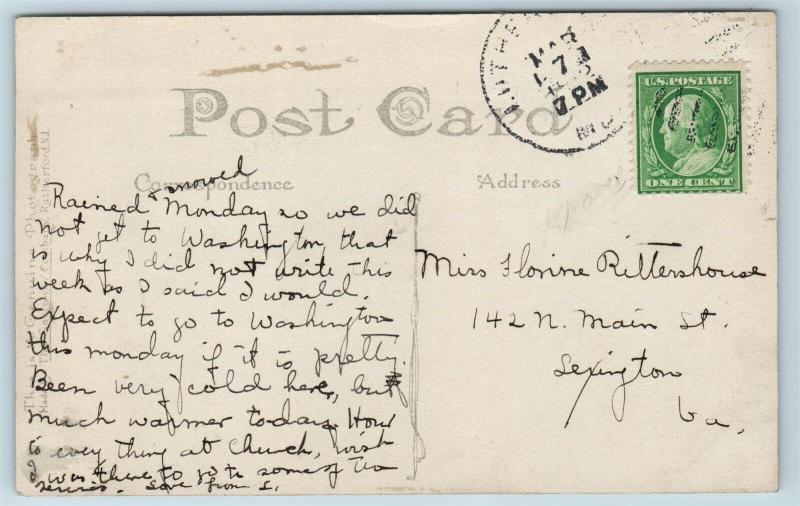 MAR
7
7 PM
U.S. POSTAGE
ONE CENT
Post Card
Correspondence
Address
This is a Genuine Photograph
Rutherford, N.J.
snowed
Rained Monday so we did
not get to Washington, that
is why I did not write this
week as I said I would.
Expect to go to Washington
this monday if it is pretty.
Been very cold here, but
much warmer today. How
is every thing at church, wish
I was there to go to some of the
services. Love from I.
Miss Florine Rittershouse
142 N. Main St.
Lexington
Va.